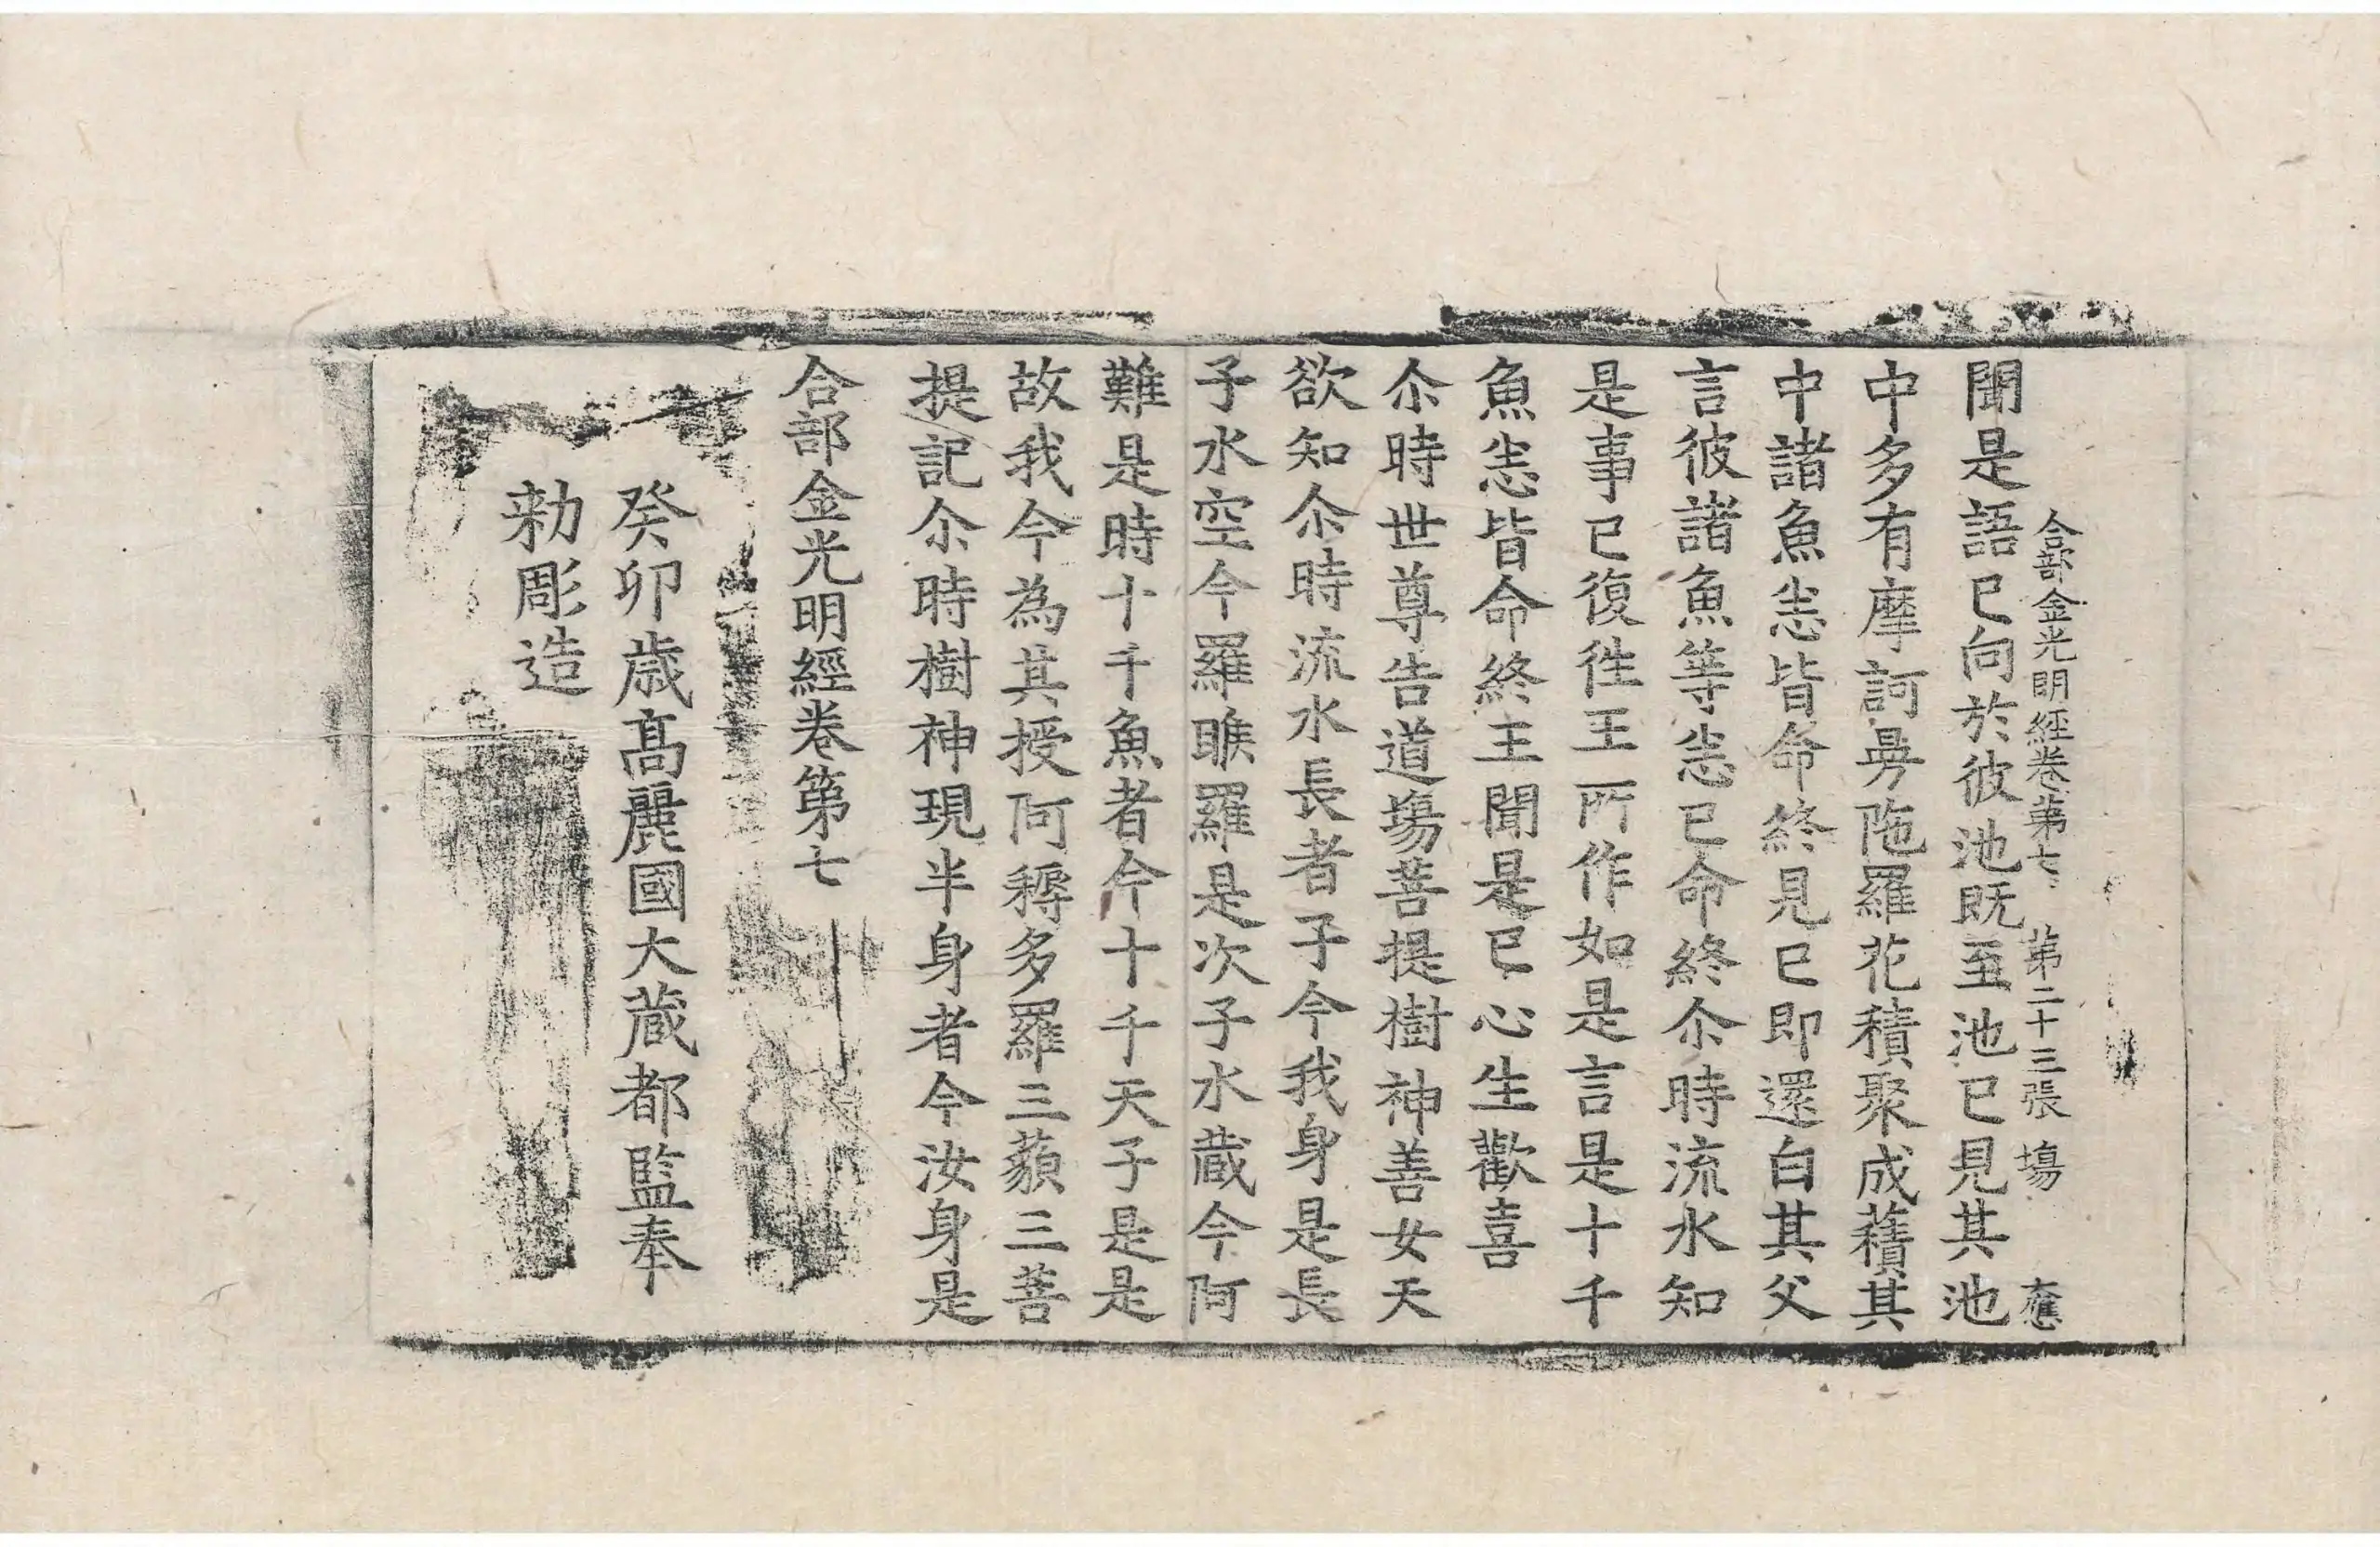 合部金光明經卷第七 第二十三張 場
聞是語已向於彼池旣至池已見其池
中多有摩訶曼陁羅花積聚成𧂐其
中諸魚悉皆命終見已即還白其父
言彼諸魚等悉已命終尒時流水知
是事已復徃王所作如是言是十千
魚悉皆命終王聞是已心生歡喜
尒時世尊告道場菩提樹神善女天
欲知尒時流水長者子今我身是長
子水空今羅睺羅是次子水蔵今阿
難是時十千魚者今十千天子是是
故我今為其授阿耨多羅三藐三菩
提記尒時樹神現半身者今汝身是
合部金光明經卷第七
癸卯歳髙麗國大蔵都監奉
勑彫造